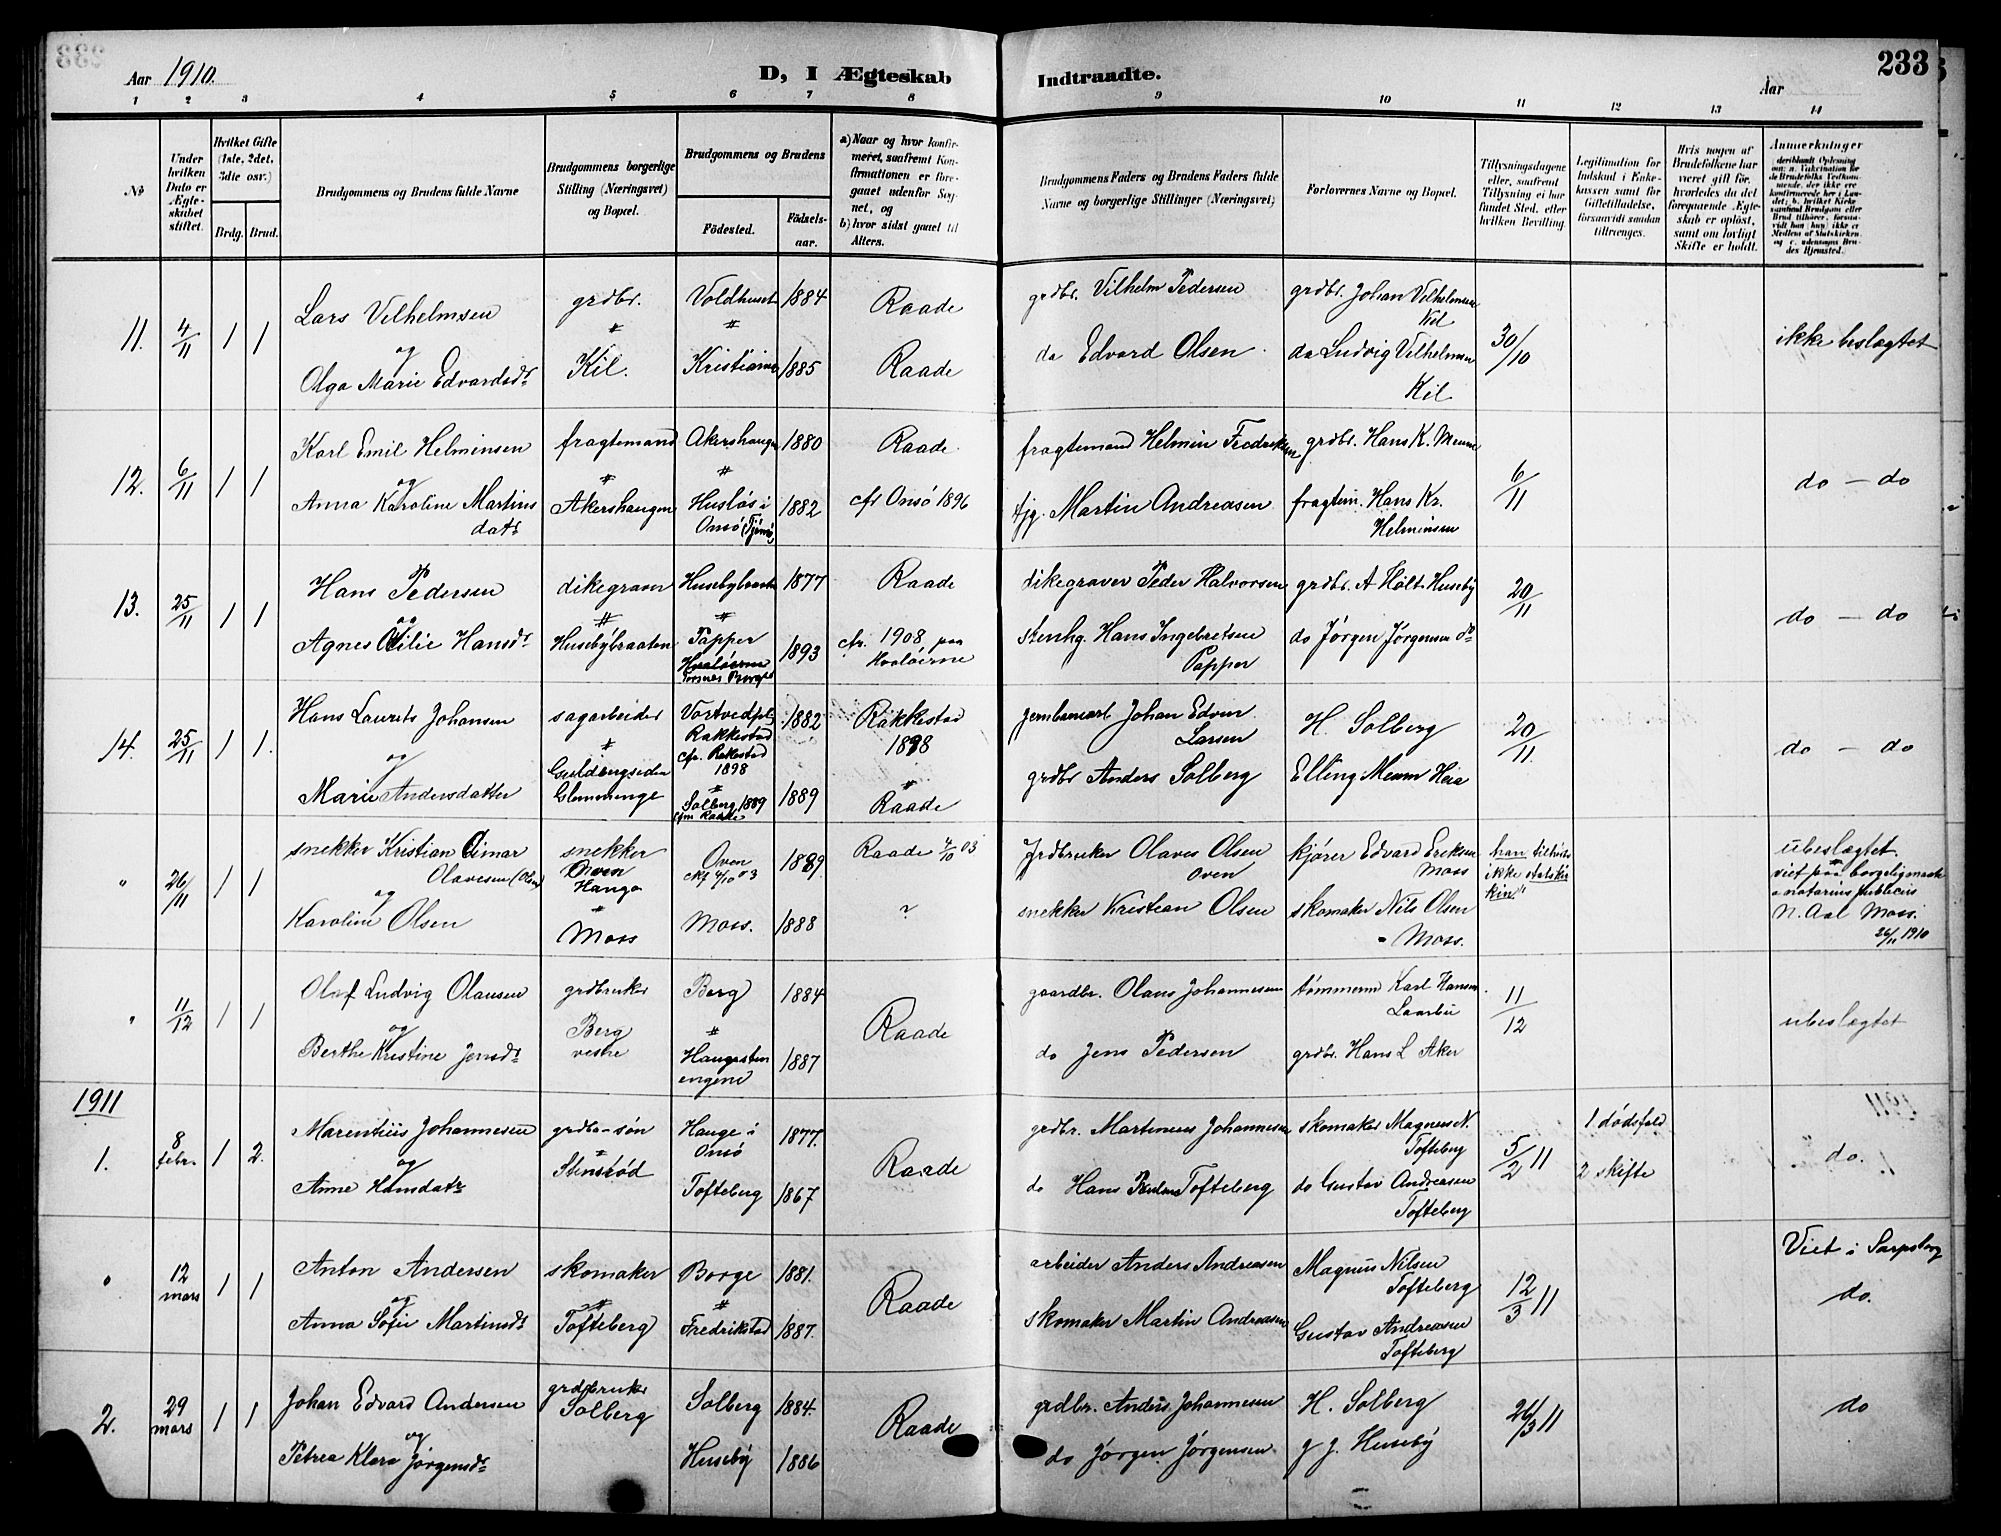 Aar 1910.
D, I Ægteskab
Indtraadte.
Aar
233
1 2 3 4 5 6 7 8
9 10 11 12 13 14
No
Under hvilken Dato er Ægteskabet stiftet.
Hvilket Gifte (1ste, 2det, 3die osv.)
Brdg. Brud.
Brudgommens og Brudens fulde Navne
Brudgommens borgerlige Stilling (Næringsvei) og Bopæl.
Brudgommens og Brudens
Födested.
Födselsaar.
a) Naar og hvor konfirmeret, saafremt Konfirmationen er foregaaet udenfor Sognet, og
b) hvor sidst gaaet til Alters.
Brudgommens Faders og Brudens Faders fulde Navne og borgerlige Stillinger (Næringsvei)
Forlovernes Navne og Bopæl.
Tillysningsdagene eller, saafremt Tillysning ei har fundet Sted, efter hvilken Bevilling.
Legitimation for Indskud i Enkekassen samt for Giftetilladelse, forsaavidt saadan tiltrænges.
Hvis nogen af Brudefolkene har været gift før, hvorledes da det foregaaende Ægteskab er opløst, samt om lovligt Skifte er holdt.
Anmærkninger
11. 4/11 1 1
Lars Vilhelmsen
og
Olga Marie Edvardsdr
grdbr.
Kil.
Voldhuset 1884
Kristiania 1885
Raade
Raade
grdbr. Vilhelm Pedersen
do Edvard Olsen
grdbr. Johan Vilhelmsen
Kil
do Ludvig Vilhelmsen
Kil
30/10
ikke beslægtet
12. 6/11 1 1
Karl Emil Helminsen
og
Anna Karoline Martins
datr
fragtemand
Akershaugen
Akershaugen 1880
Husløs i
Onsø 1882
Raade
cfr Onsö 1896
fragtemand Helmin Fredriksen
tjg. Martin Andreasen
grdbr. Hans K. Menne
fragtem. Hans Kr.
Helminsen
6/11
do – do
13. 25/11 1 1
Hans Pedersen
og
Agnes Otilie Hansdr
dikegraver
Husebybraaten
Husebybraaten 1877
Papper
Hvaløerne 1893
Raade
cfr. 1908 paa
Hvaløerne
dikegraver Peder Halvorsen
stenhg. Hans Ingebretsen
Papper
grdbr. A Holt Huseby
do Jørgen Jørgensen do
20/11
do – do
14. 25/11 1 1.
Hans Laurits Johansen
og
Marie Andersdatter
sagarbeider
Glemminge
Rakkestad 1882
cfr. Rakestad
1898
Solberg 1889 1889
cfm Raade
Rakkestad
1898
Raade
Johan Edvin
Larsen
grdbr Anders Solberg
H. Solberg
Elling Menn Heia
20/11.
do – do
" 26/11 1 1
snekker Kristian
Olavesen (Olsen)
og
Karoline Olsen
snekker
Oven
Haugo
Moss
Oven
ckf 4/10 03 1889
Moss. 1888
Raade 4/10 03
?
Jrdbruker Olaves Olsen
Oven
snekker Kristian Olsen
kjører Edvard Eriksen
Moss
skomaker Nils Olsen
" Moss.
han tilhører
ikke statskir
kin"
ubeslægtet.
viet paa borgelig maate
notarius publicus
N. Aal Moss.
26/11 1910
" 11/12 1 1
Olaf Ludvig Olausen
og
Berthe Kristine Jensdr
grdbruker
Berg
vestre
Berg 1884
Haugesten
engene 1887
Raade
gaardbr. Olaus Johannesen
do Jens Pedersen
tømmerm Karl Hansen
Laarbu
grdbr. Hans L Aker
11/12
ubeslægtet
1911
1. 8 febr. 1 2.
Marentius Johannesen
og
Anne Hansdatr
grdbr-søn
Stensrød
Hauge i
Onsø 1877.
Tofteberg 1867
Raade
grdbr. Martineus Johannesen
do Hans Tofteberg
skomaker Magnus N.
Tofteberg
do Gustav Andreasen
Tofteberg
5/2 11
1 dødsfald
2 skifte
do.
" 12 mars 1 1
Anton Andersen
og
Anna Sofie Martinsdr
skomaker
Tofteberg
Borge 1881.
Fredrikstad 1887.
Raade
arbeider Anders Andreasen
skomaker Martin Andreasen
Magnus Nilsen
Tofteberg
Gustav Andreasen
Tofteberg
12/3 11
Viet i Sarpsborg
do.
2. 29 mars 1 1
Johan Edvard Andersen
og
Petrea Klara Jørgensdr
grdbruker
Solberg
Solberg 1884.
Huseby 1886
Raade
grdbr. Anders Johannesen
do Jørgen Jørgensen
H. Solberg
J J. Huseby
26/3 11
do